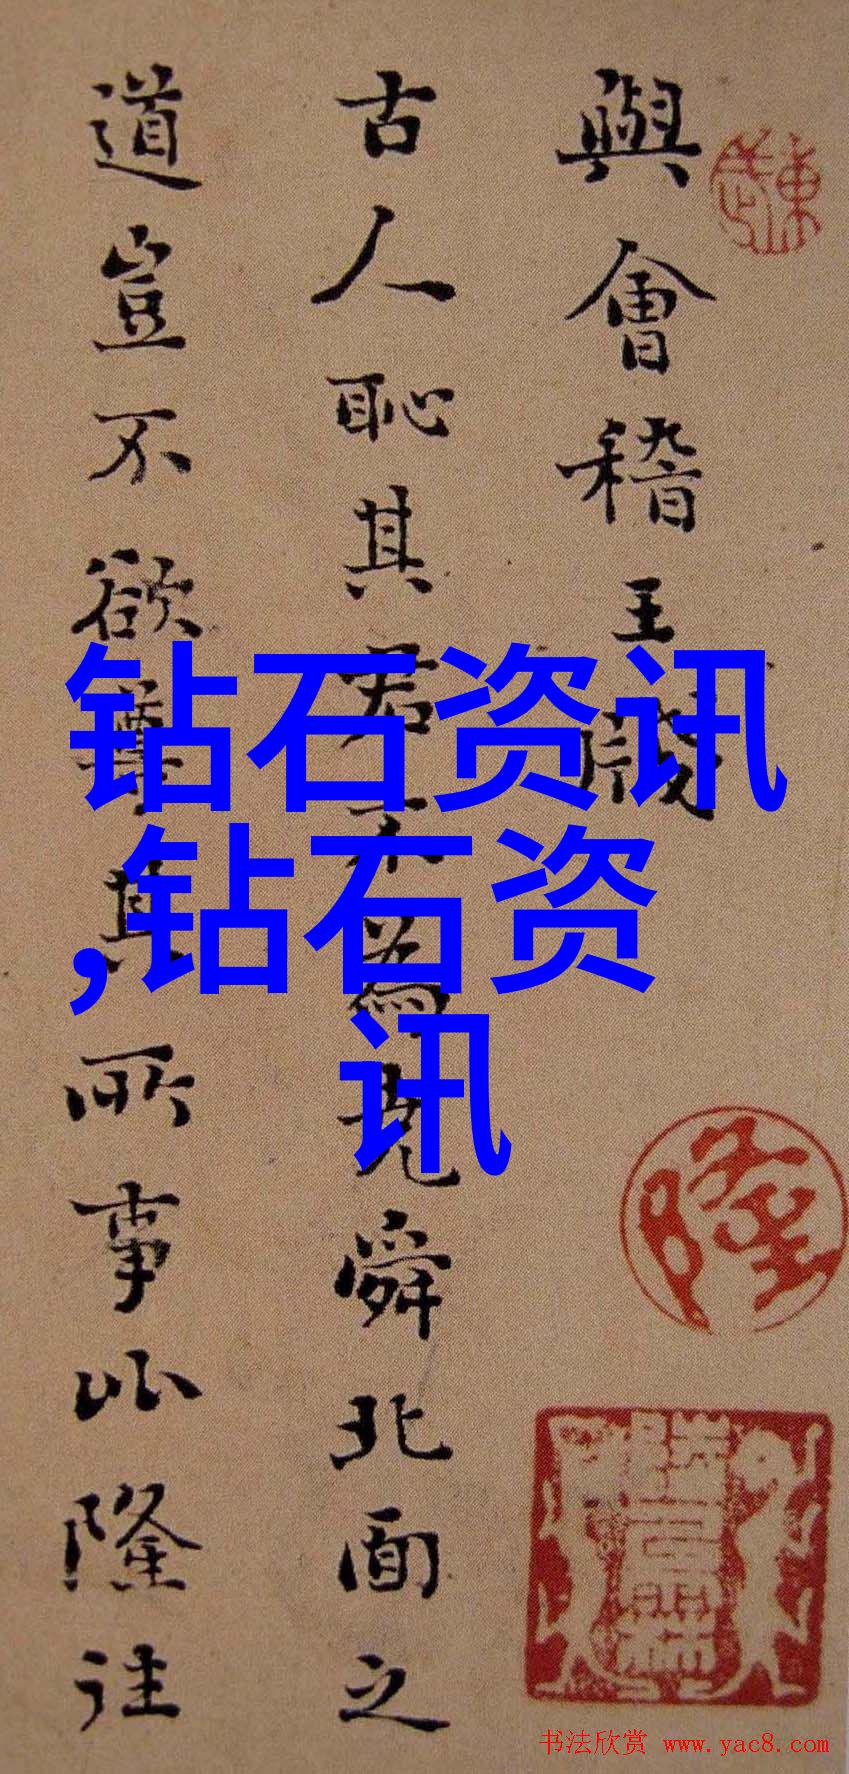 與會稽王牋
古人恥其君不為堯舜北面之
道豈不欲尊其所事比隆往
钻石资讯
,钻石资
讯
隆
书法欣赏 www.yac8.com